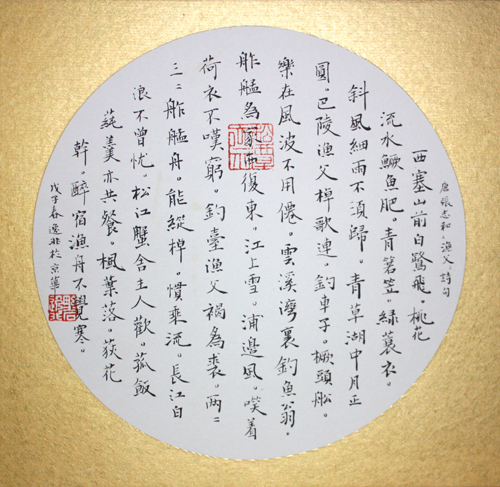 唐張志和。漁父詩句
西塞山前白鷺飛。桃花
流水鱖魚肥。青箬笠。綠蓑衣。
斜風細雨不須歸。青草湖中月正
圓。巴陵漁父棹歌連。釣車子。橛頭船。
樂在風波不用僊。雲溪灣裏釣魚翁。
舴艋為家西復東。江上雪。浦邊風。着
荷衣不嘆窮。釣臺漁父褐為裘。两〻
三〻舴艋舟。能縱棹。慣乘流。長江白
浪不曾忧。松江蟹舍主人歡。菰飯
蓴羹亦共餐。楓葉落。荻花
幹。醉宿漁舟不覺寒。
戊子春於京華